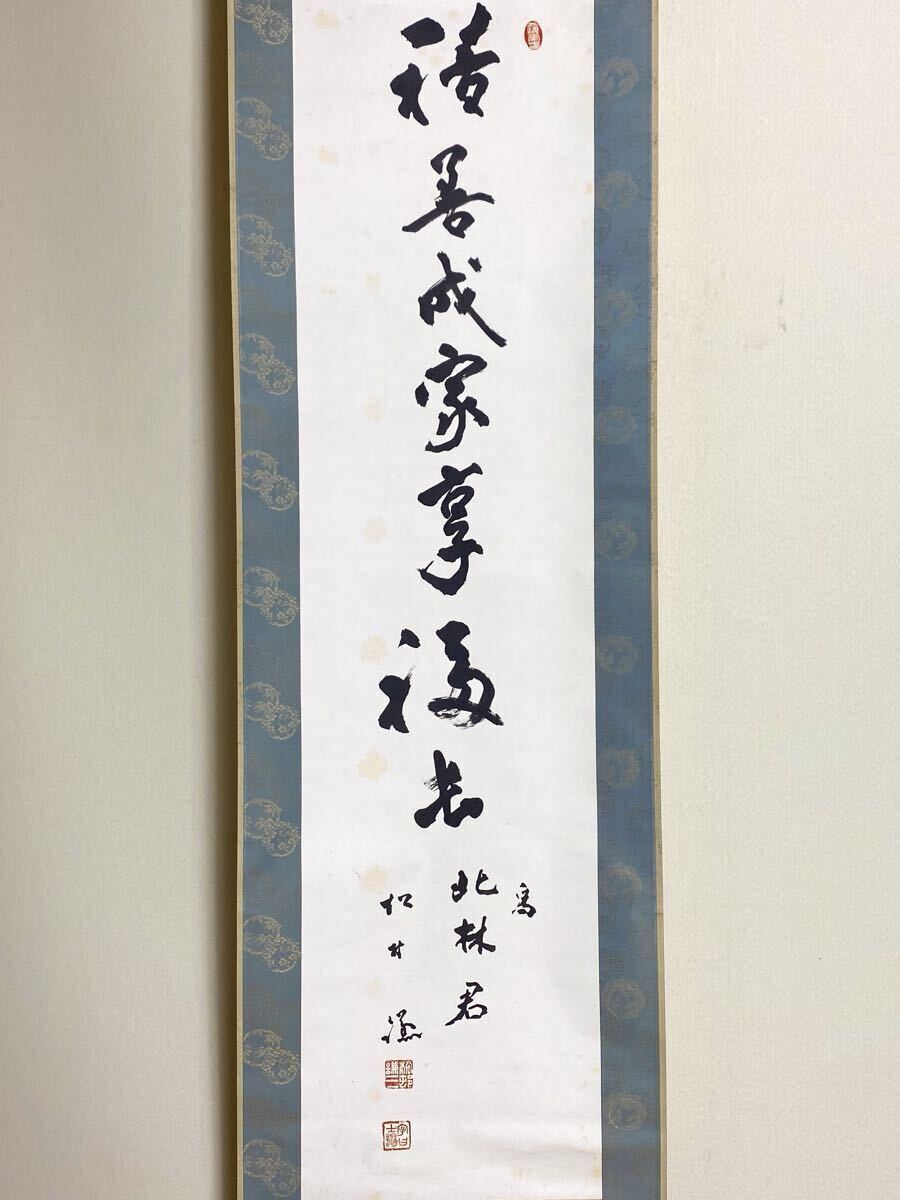 積善成家享福长
為
北林君
松村謙